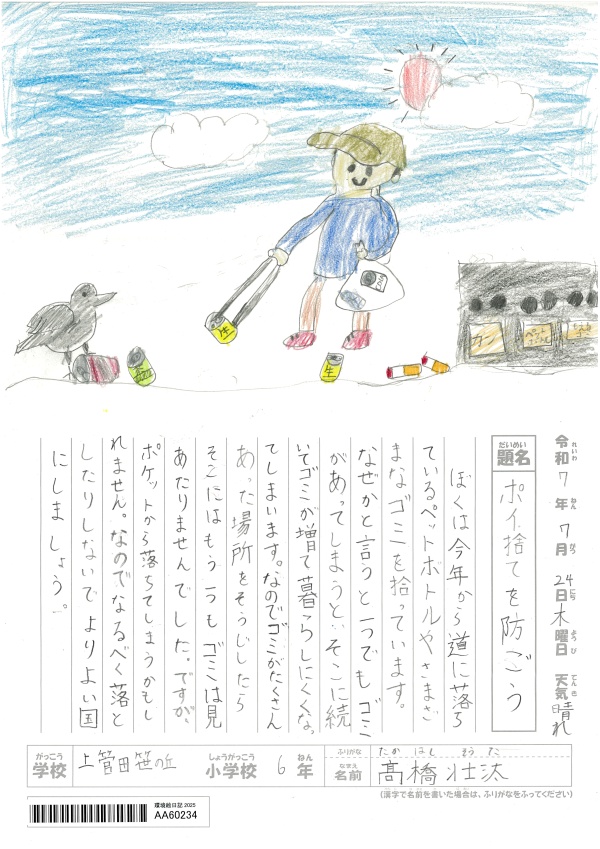 生
生
カン
ペットボトル
令和7年7月24日木曜日 天気 晴れ
れいわ ねん がつ にち ようび てんき
だいめい
題名 ポイ捨てを防ごう
ぼくは今年から道に落ち
ているペットボトルやさまざ
まなゴミを拾っています。
なぜかと言うと一つでもゴミ
があってしまうと、そこに続
いてゴミが増て暮らしにくくな
てしまいます。なのでゴミがたくさん
あった場所をそうじしたら
そこにはもう一つもゴミは見
あたりませんでした。ですが、
ポケットから落ちてしまうかもし
れません。なのでなるべく落と
したりしないでよりよい国
にしましょう。
がっこう しょうがっこう ねん ふりがな たかはし そうた
学校 上菅田笹の丘 小学校 6年 なまえ 名前 髙橋壮汰
(漢字で名前を書いた場合は、ふりがなをふってください)
環境絵日記 2025
AA60234